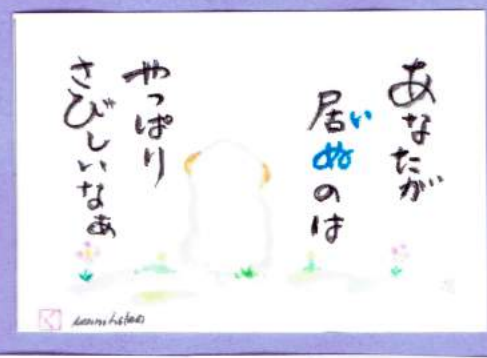 あなたが
居ぬのは
い
やっぱり
さびしいなぁ